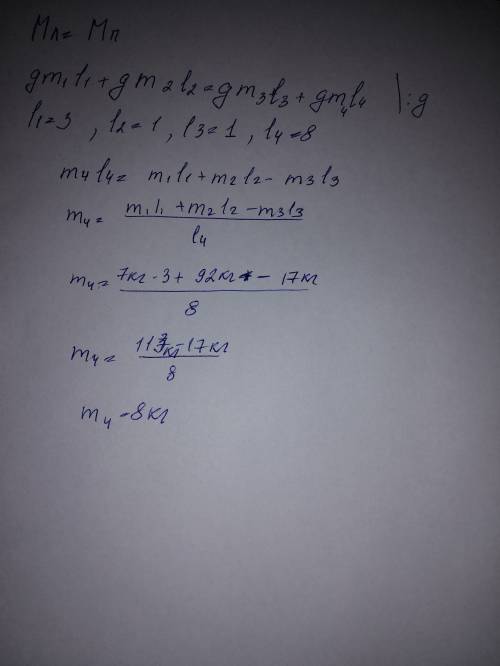 Mл = Mп
gm₁l₁ + gm₂l₂ = gm₃l₃ + gm₄l₄ | :g
l₁=3 , l₂=1 , l₃=1 , l₄=8
m₄l₄ = m₁l₁ + m₂l₂ - m₃l₃
m₄ = m₁l₁ + m₂l₂ - m₃l₃
l₄
m₄ = 7кг · 3 + 92кг - 17кг
8
m₄ = 113кг - 17кг
8
m₄ = 8кг